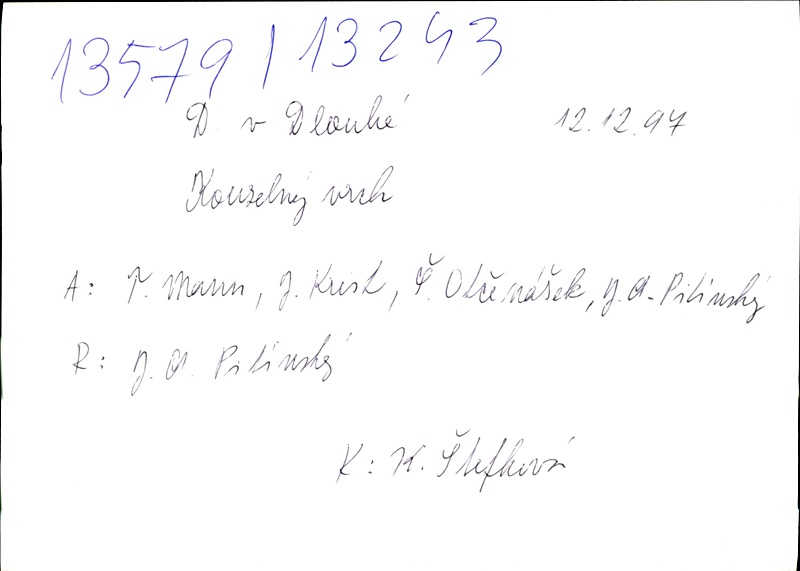 13579 / 13243
D. v Dlouhé 12.12.97
Kouzelný vrch
A: T. Mann, J. Krist, Š. Otčenášek, J. A. Pitínský
R: J. A. Pitínský
K: K. Štefková